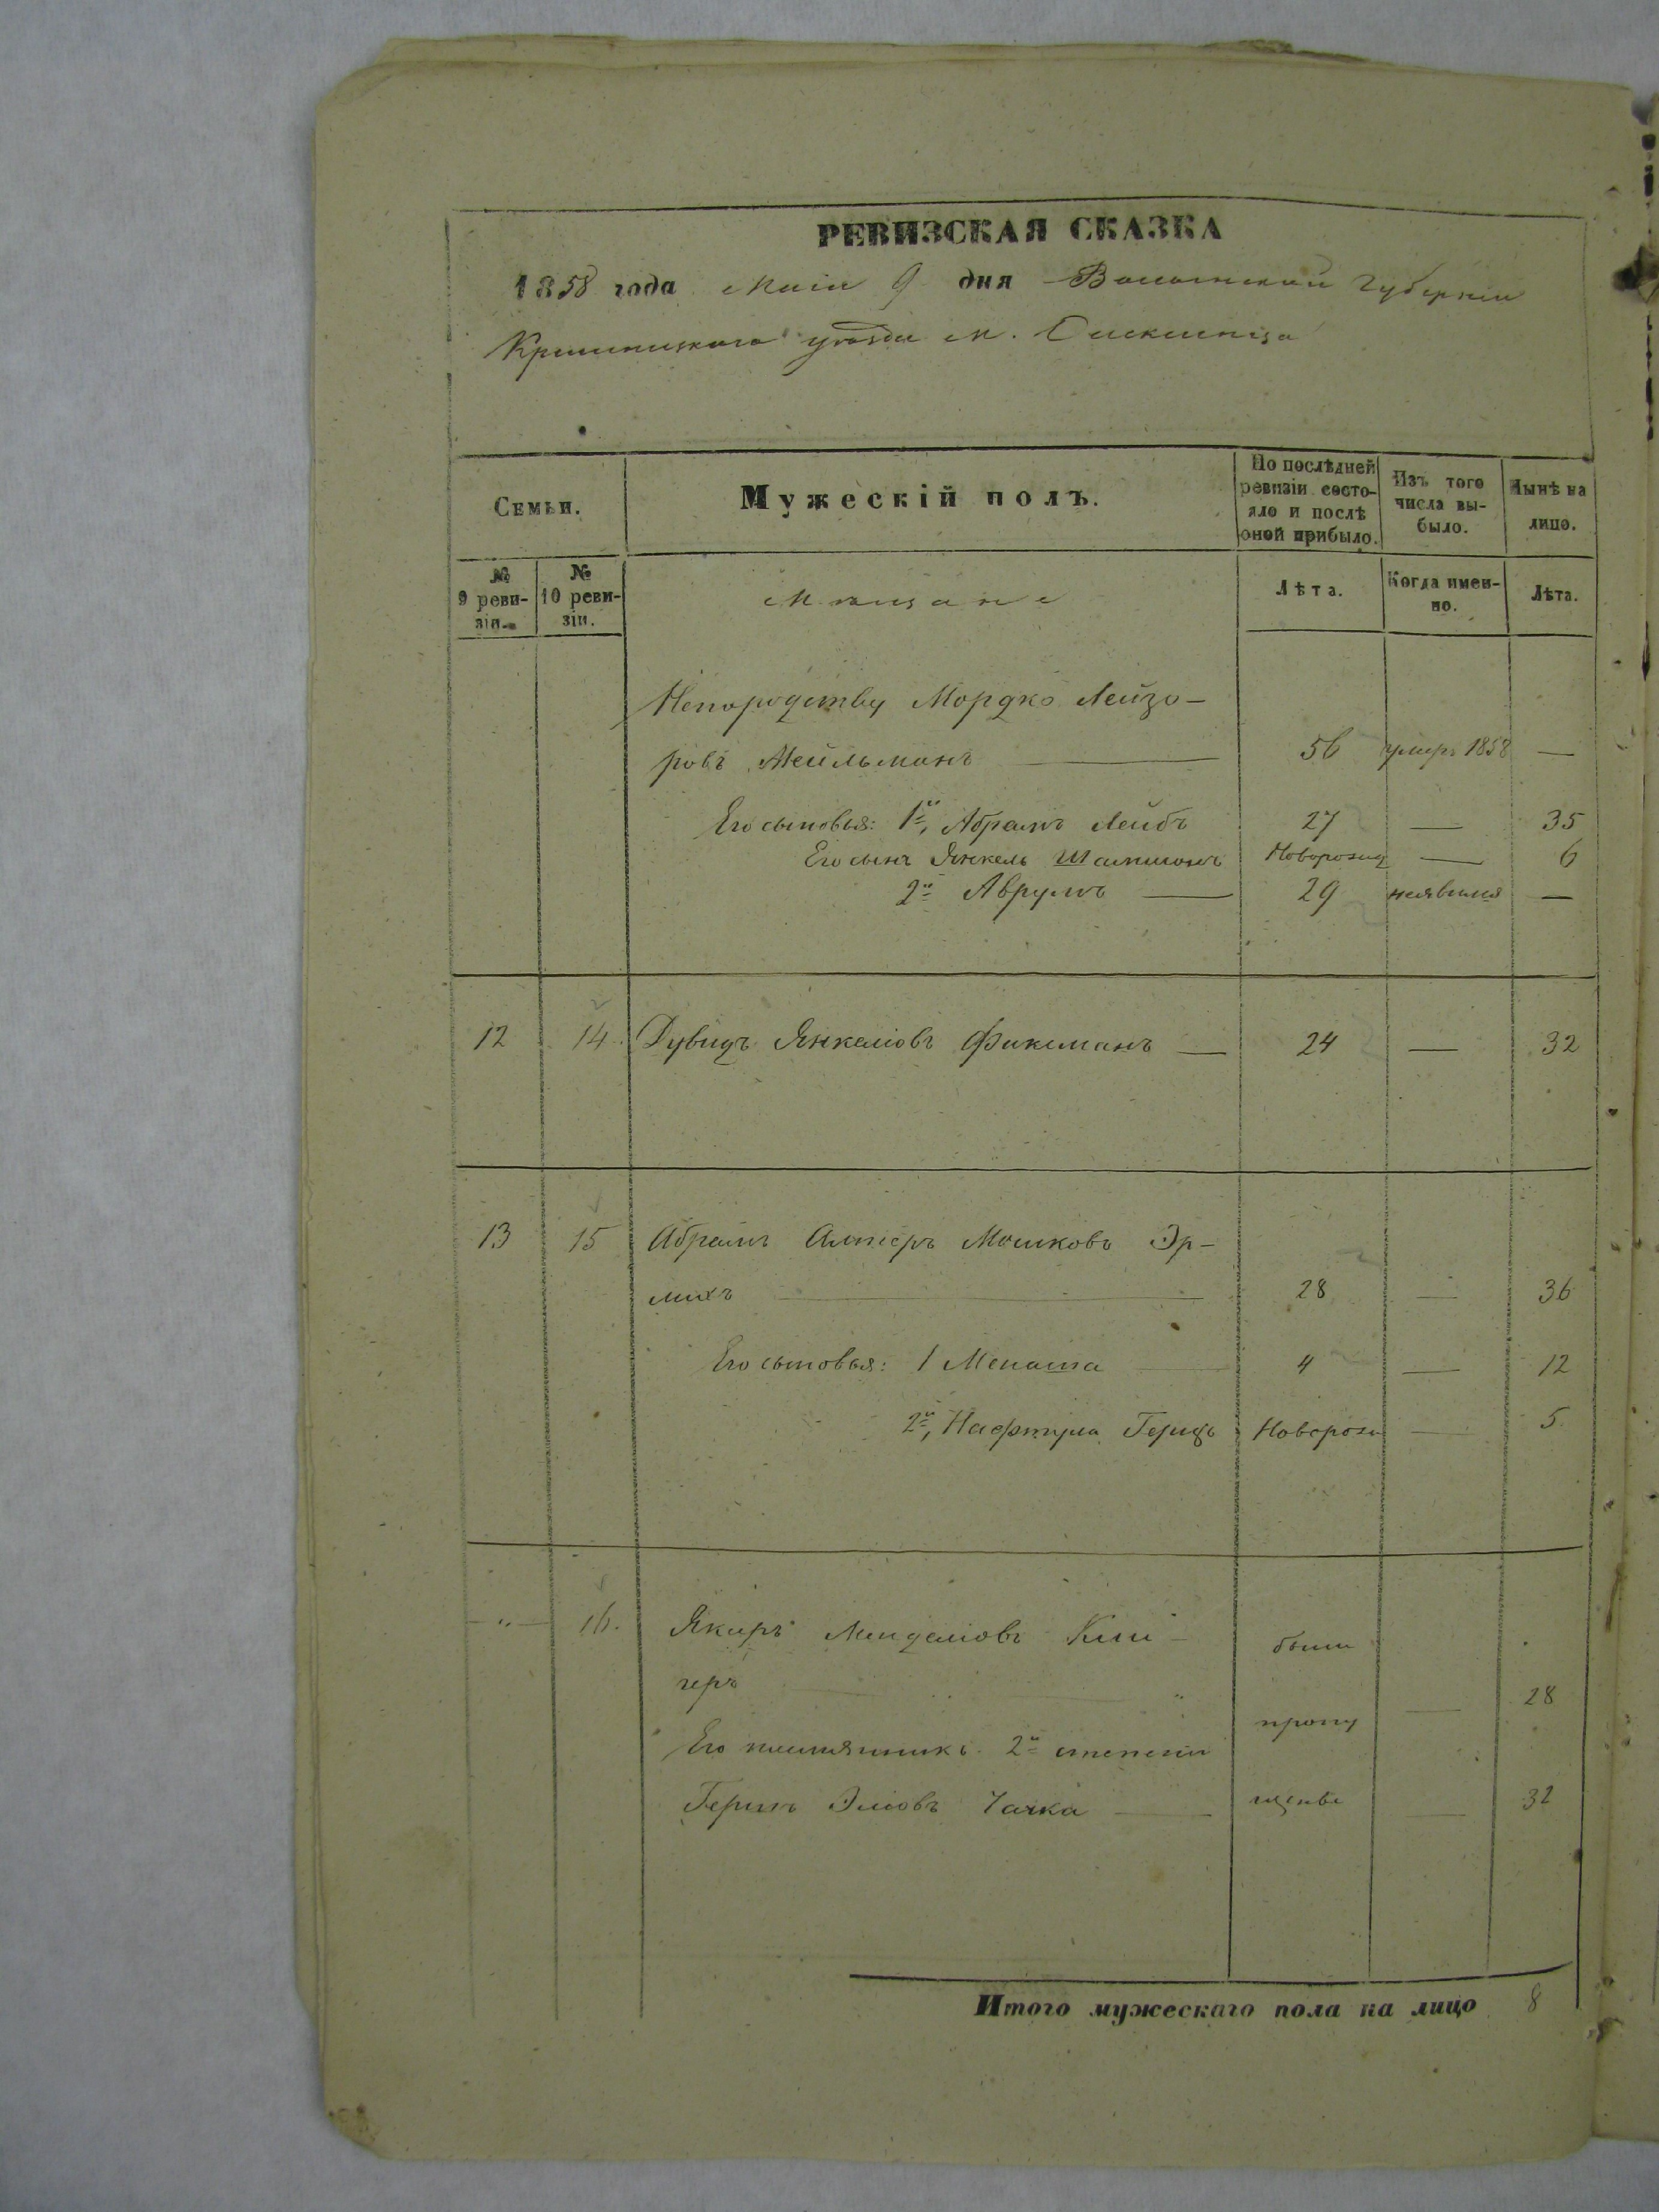 РЕВИЗСКАЯ СКАЗКА
1858 года Маія 9 дня Волынской Губерніи
Кременецкаго уѣзда м.
Семьи.
Мужескій полъ.
По послѣдней ревизіи состояло и послѣ оной прибыло.
Изъ того числа выбыло.
Нынѣ на лицо.
№ 9 ревизіи.
№ 10 ревизіи.
Мѣщане
Лѣта.
Когда именно.
Лѣта.
Непородству Мордко Лейзо-
ровъ Мейльманъ — 56 умеръ 1858 —
Его сыновья: 1й, Абрамъ Лейбъ 27 — 35
Его сынъ Янкель Шамшонъ Новорожд — 6
2й Аврумъ — 29 неявился —
12 14. Дувидъ Янкеліовъ Фиксманъ — 24 — 32
13 15 Абрамъ Алтеръ Мошковъ Эр-
лихъ — 28 — 36
Его сыновья: 1 Менаша — 4 — 12
2й, Нафтула Герщъ Новорож — 5
— " — 16. Якиръ Менделіовъ были
геръ — " — 28
пропу
Его племянникъ 2й степени
Гершъ Эліовъ Чачка — щены — 32
Итого мужескаго пола на лицо 8